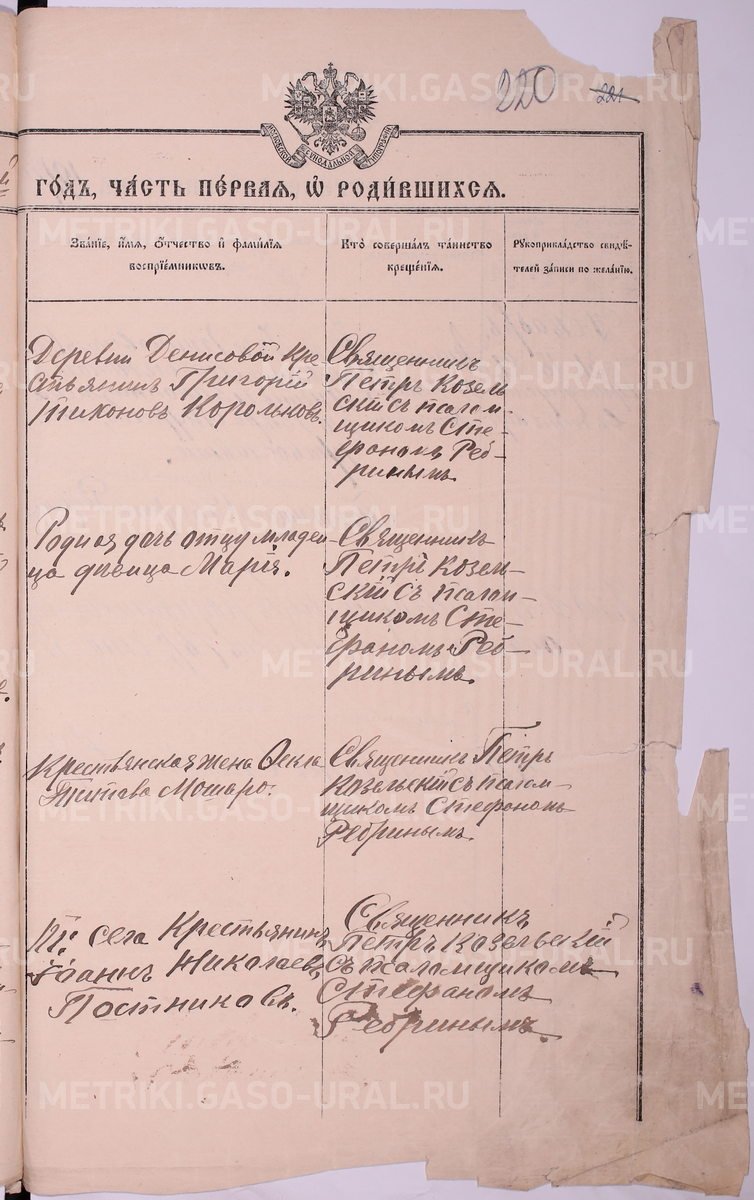 220
221
МОСКОВСКОЙ СѴНОДАЛЬНОЙ ТИПОГРАФІИ
го́дъ, ча́сть пе́рвая, ѡ҆ роди́вшихсѧ.
Зва́нїе, и҆́мѧ, ѻ҆́тчество и҆ фамилїѧ
воспрїе́мникѡвъ.
Кто̀ соверша́лъ та́инство
креще́нїѧ.
Рꙋкоприкла́дство свидѣ́-
телей за́писи по жела́нїю.
Деревни Денисовой кре
стьянинъ Григорій
Тихоновъ Корольковъ.
Священникъ
Петръ Козель
скій съ псалом-
щикомъ Сте-
фаномъ Реб-
ринымъ.
Родная дочь отцу младен-
ца девица Марія.
Священникъ
Петръ Козель-
скій съ псалом-
щикомъ Сте-
фаномъ Реб-
ринымъ.
Крестьянская жена Ѳекла
Титова
Священникъ Петръ
Козельскій съ псалом-
щикомъ Стефаномъ
Ребринымъ.
села Крестьянинъ
Іоаннъ Николаевъ
Постниковъ.
Священникъ
Петръ Козельскій
съ псаломщикомъ
Стефаномъ
Ребринымъ.
METRIKI.GASO-URAL.RU